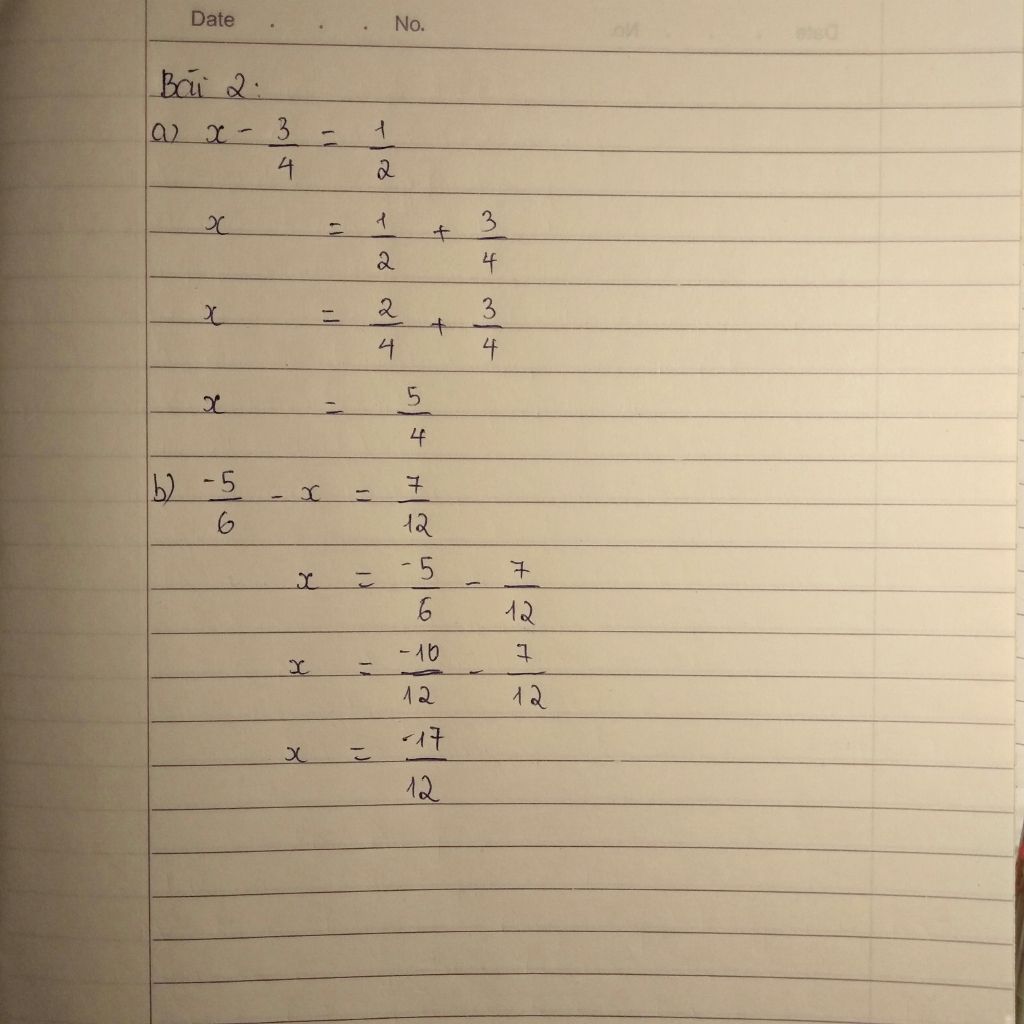 Date . . . No.
Bài 2:
a) x - 3/4 = 1/2
x = 1/2 + 3/4
x = 2/4 + 3/4
x = 5/4
b) -5/6 - x = 7/12
x = -5/6 - 7/12
x = -10/12 - 7/12
x = -17/12